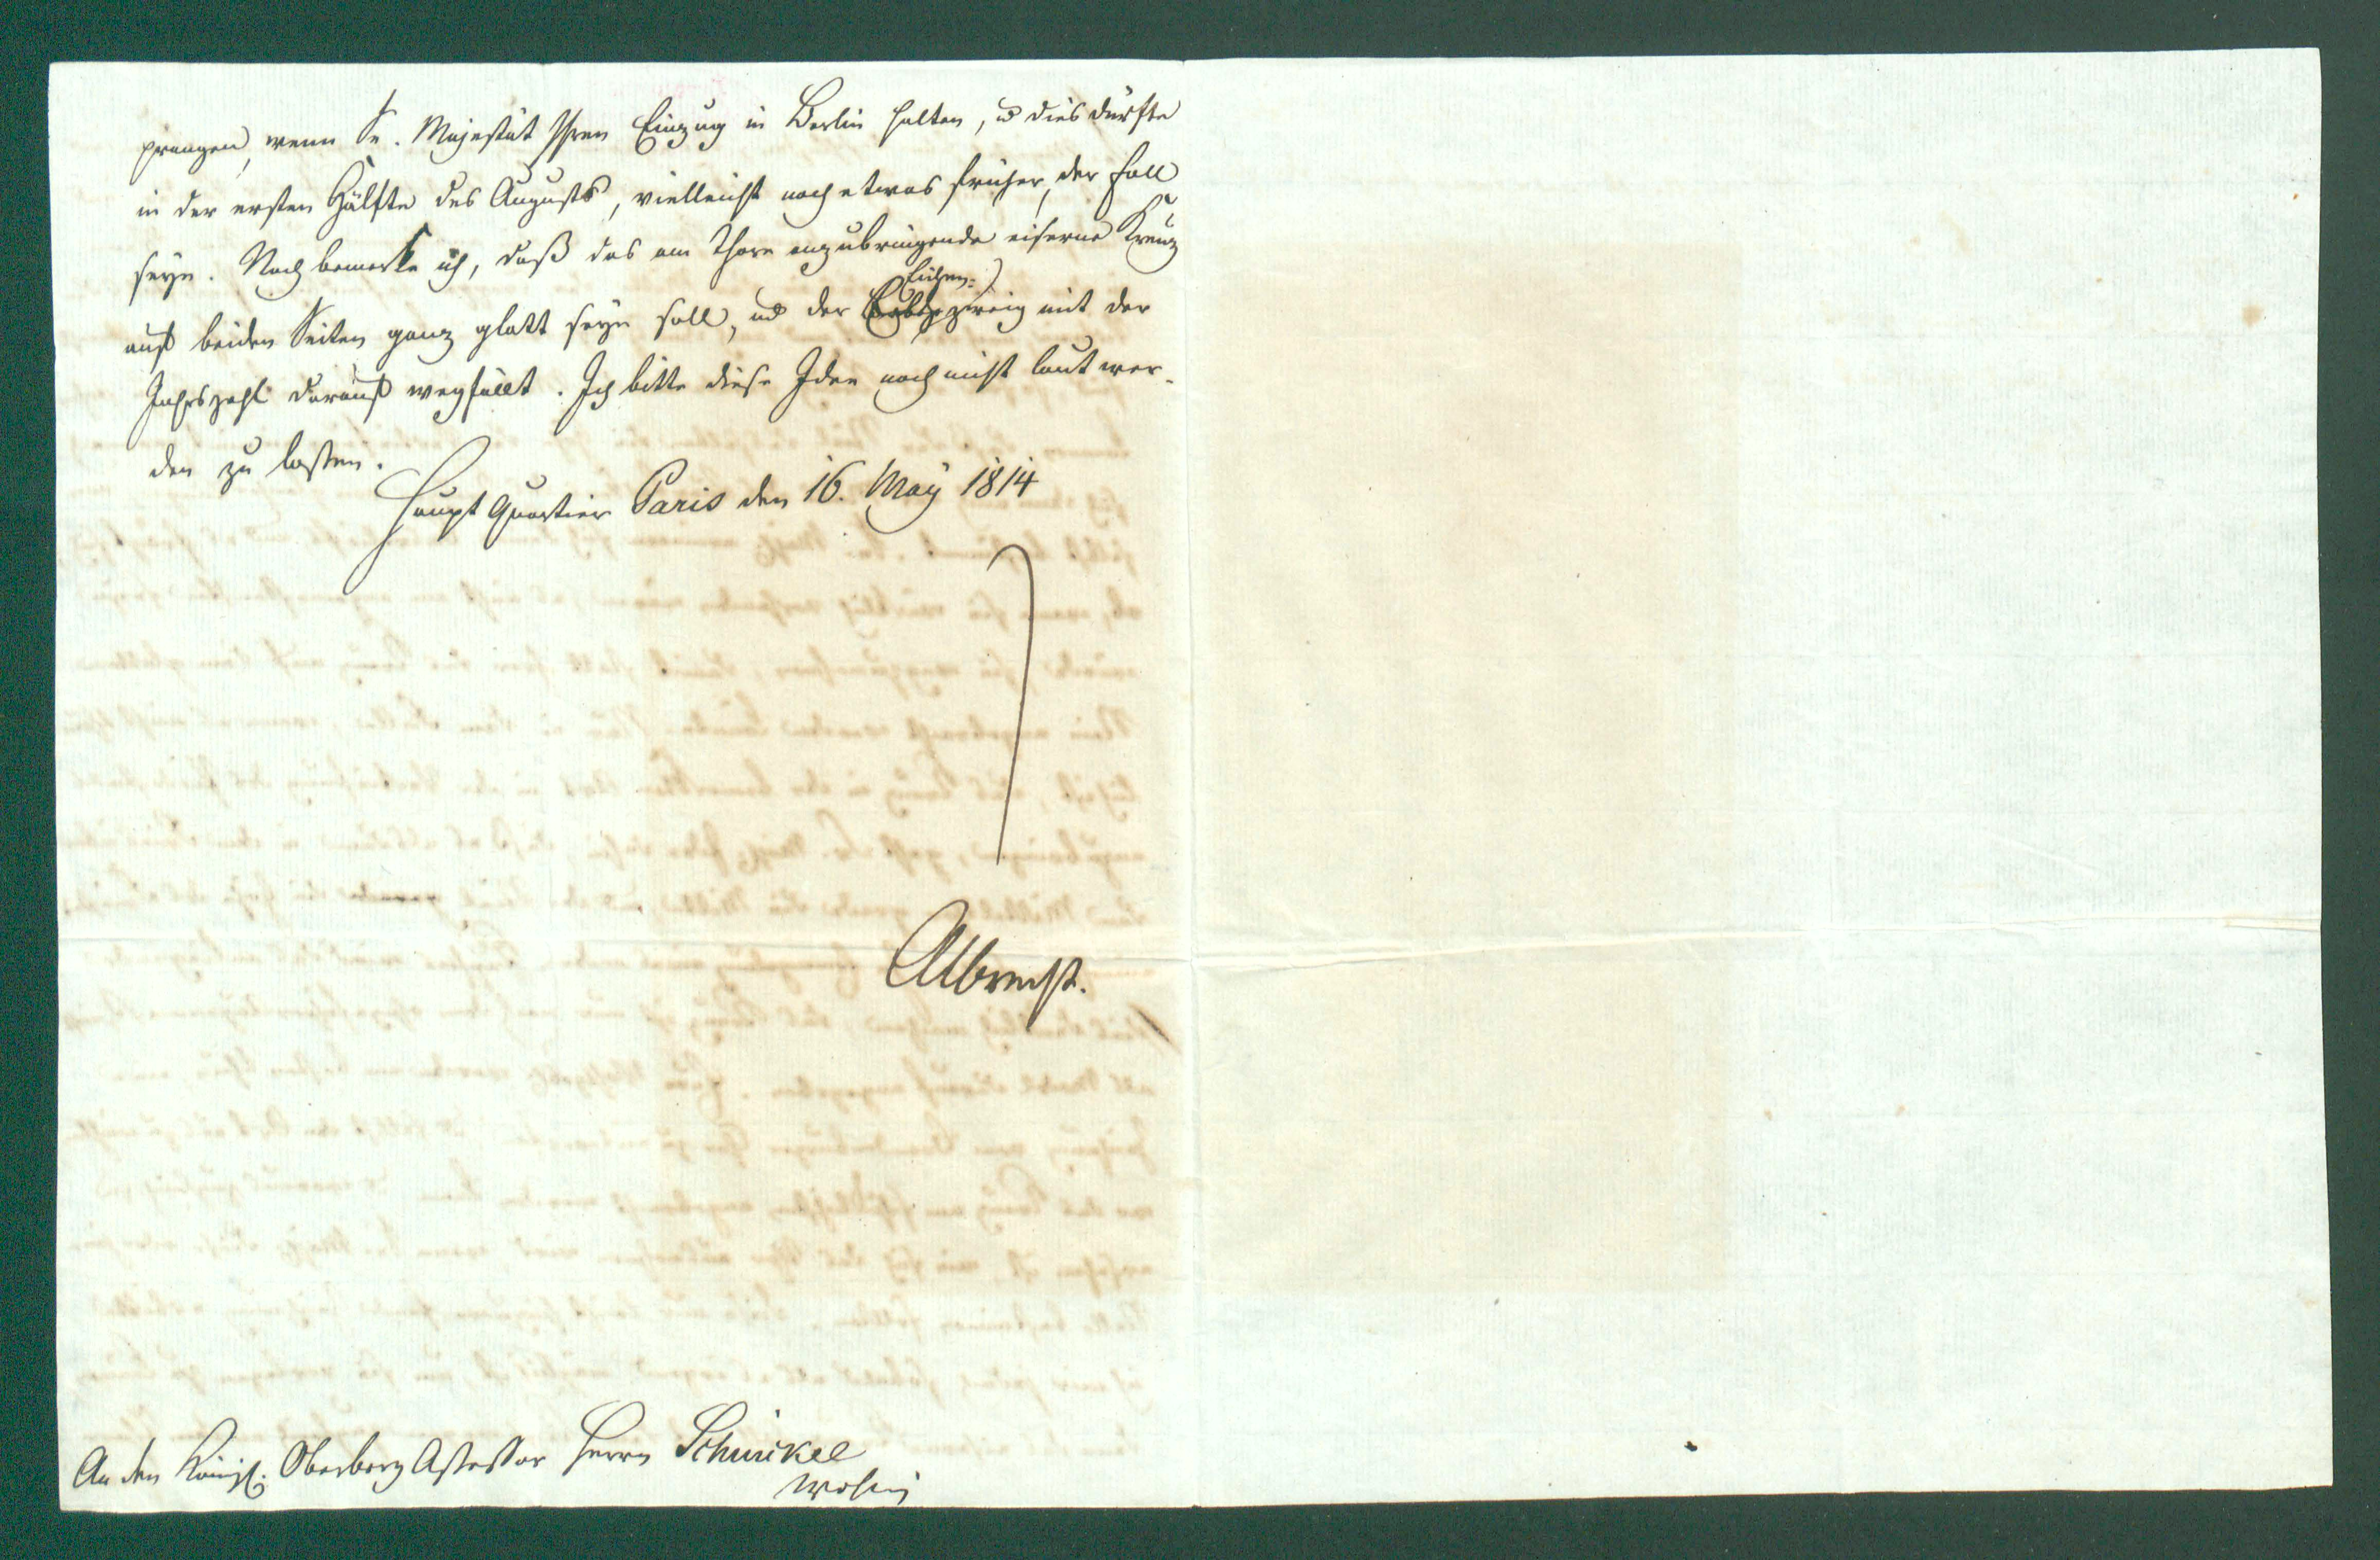 prangen, wenn Se. Majestät Ihren Einzug in Berlin halten, u dies dürfte
in der ersten Hälfte des Augusts, vielleicht noch etwas früher, der Fall
seyn. Noch bemerke ich, daß das am Thore anzubringende eiserne Kreuz
auf beiden Seiten ganz glatt seyn soll, und der
Eichen-
zweig mit der
Jahrszahl darauf wegfällt. Ich bitte diese Idee noch nicht laut wer-
den zu lassen.
Haupt Quartier Paris den 16. May 1814
Albrecht.
An den Königl. Oberberg Assessor Herrn Schinckel